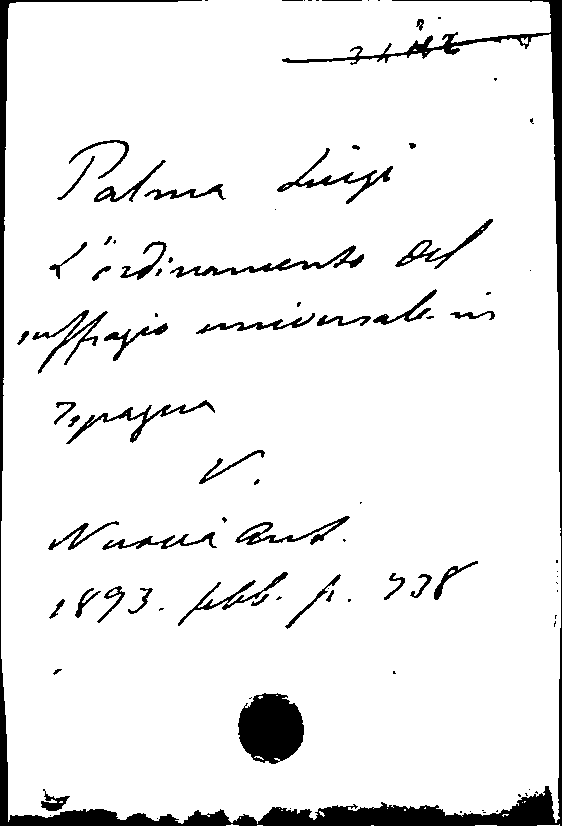 Palma Luigi
L'ordinamento del
suffragio universale in
Ispagna
V.
Nuova Ant.
1893. febb. p. 738